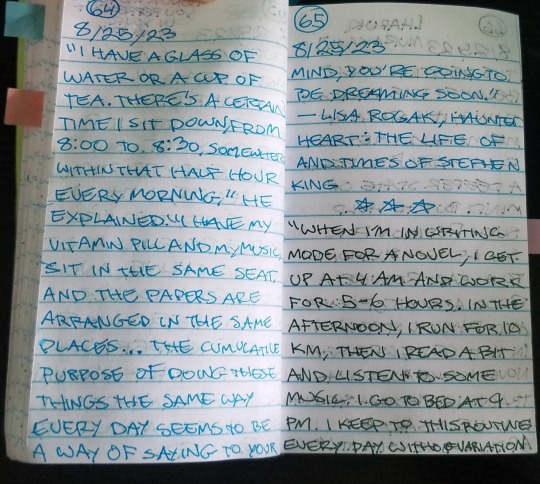 64
8/25/23
"I HAVE A GLASS OF
WATER OR A CUP OF
TEA. THERE'S A CERTAIN
TIME I SIT DOWN, FROM
8:00 TO 8:30, SOMEWHERE
WITHIN THAT HALF HOUR
EVERY MORNING," HE
EXPLAINED. "I HAVE MY
VITAMIN PILL AND MY MUSIC,
SIT IN THE SAME SEAT,
AND THE PAPERS ARE
ARRANGED IN THE SAME
PLACES... THE CUMULATIVE
PURPOSE OF DOING THESE
THINGS THE SAME WAY
EVERY DAY SEEMS TO BE
A WAY OF SAYING TO YOUR
65
8/25/23
MIND, YOU'RE GOING TO
BE DREAMING SOON."
— LISA ROGAK, HAUNTED
HEART: THE LIFE OF
AND TIMES OF STEPHEN
KING
☆ ☆ ☆
"WHEN I'M IN WRITING
MODE FOR A NOVEL, I GET
UP AT 4 AM AND WORK
FOR 5-6 HOURS. IN THE
AFTERNOON, I RUN FOR 10
KM, THEN I READ A BIT
AND LISTEN TO SOME
MUSIC. I GO TO BED AT 9
PM. I KEEP TO THIS ROUTINE
EVERY DAY WITHOUT VARIATION.